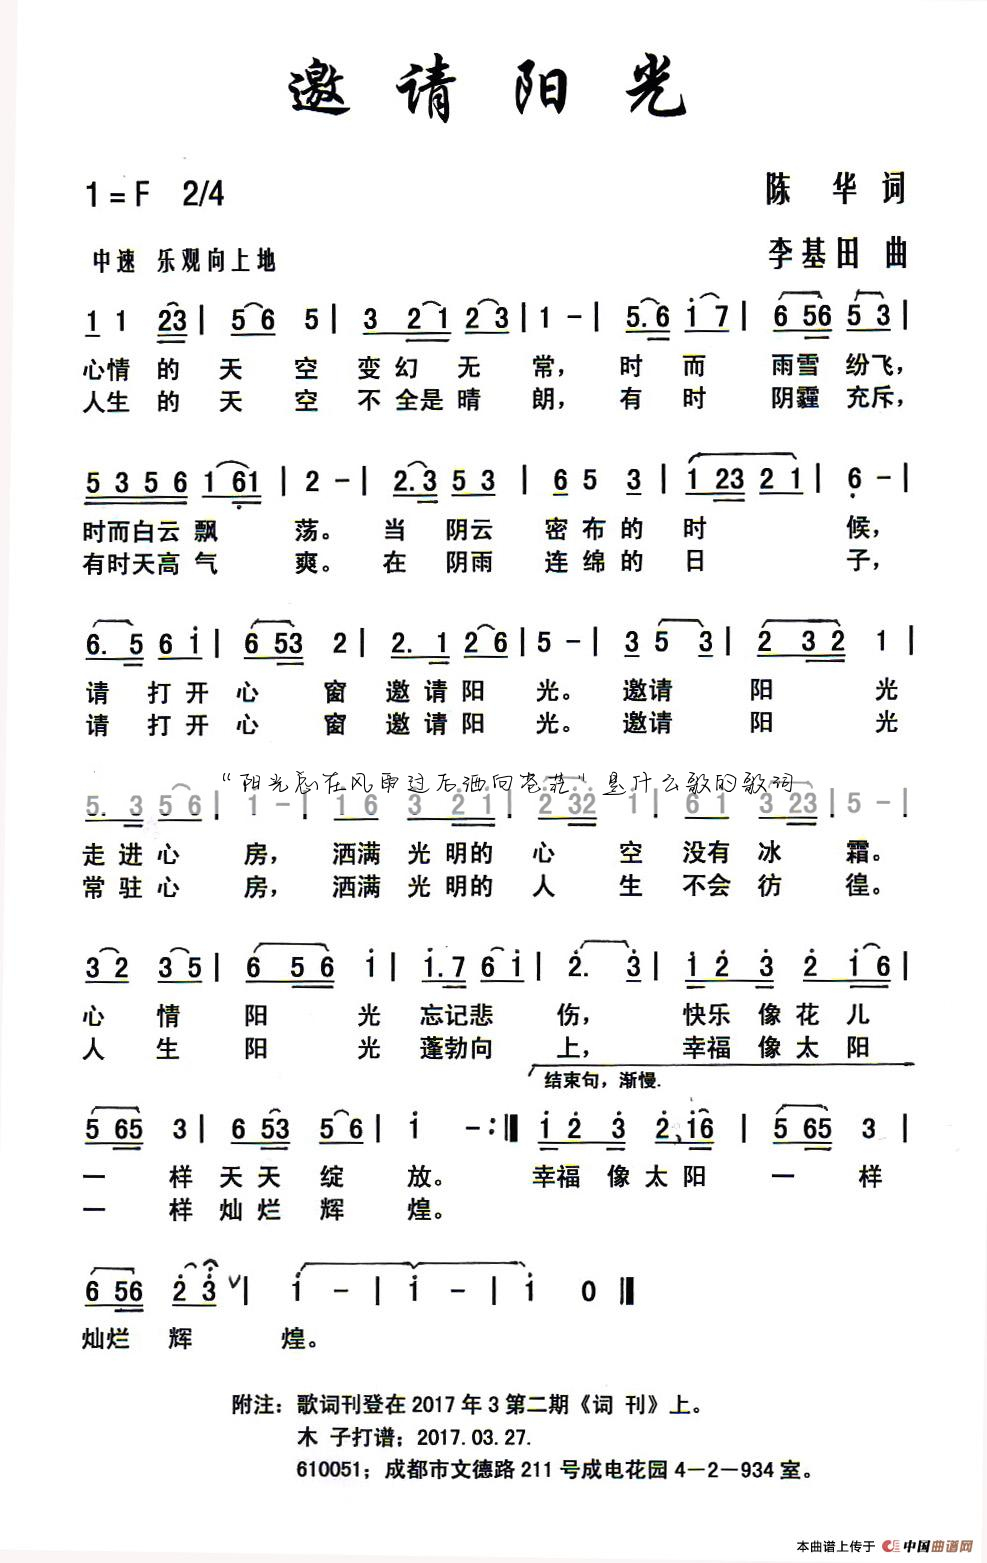 邀请阳光
1=F 2/4
陈 华 词
中速 乐观向上地
李基田 曲
1 1 23 | 5 6 5 | 3 2 1 2 3 | 1 - | 5. 6 i 7 | 6 56 5 3 |
心情的天空变幻无常，时而雨雪纷飞，
人生的天空不全是晴朗，有时阴霾充斥，
5 3 5 6 1 61 | 2 - | 2. 3 5 3 | 6 5 3 | 1 23 2 1 | 6 - |
时而白云飘荡。当阴云密布的时候，
有时天高气爽。在阴雨连绵的日子，
6. 5 6 i | 6 53 2 | 2. 1 2 6 | 5 - | 3 5 3 | 2 3 2 1 |
请打开心窗邀请阳光。邀请阳光
请打开心窗邀请阳光。邀请阳光
“阳光总在风雨过后洒向苍茫”是什么歌的歌词
5. 3 5 6 | 1 - | 6 i 6 3 2 i | 2 32 i | 6 1 3 23 | 5 - |
走进心房，洒满光明的心空没有冰霜。
常驻心房，洒满光明的人生不会彷徨。
3 2 3 5 | 6 5 6 i | i. 7 6 i | 2. 3 | i 2 3 2 i 6 |
心情阳光忘记悲伤，快乐像花儿
人生阳光蓬勃向上，幸福像太阳
结束句，渐慢.
5 65 3 | 6 53 5 6 | i - :‖ i 2 3 2 i6 | 5 65 3 |
一样天天绽放。幸福像太阳一样
一样灿烂辉煌。
6 56 2 3 ∨ | i - | i - | i 0 ‖
灿烂辉煌。
附注：歌词刊登在2017年3第二期《词 刊》上。
木 子打谱；2017.03.27.
610051；成都市文德路211号成电花园4－2－934室。
本曲谱上传于 中国曲谱网